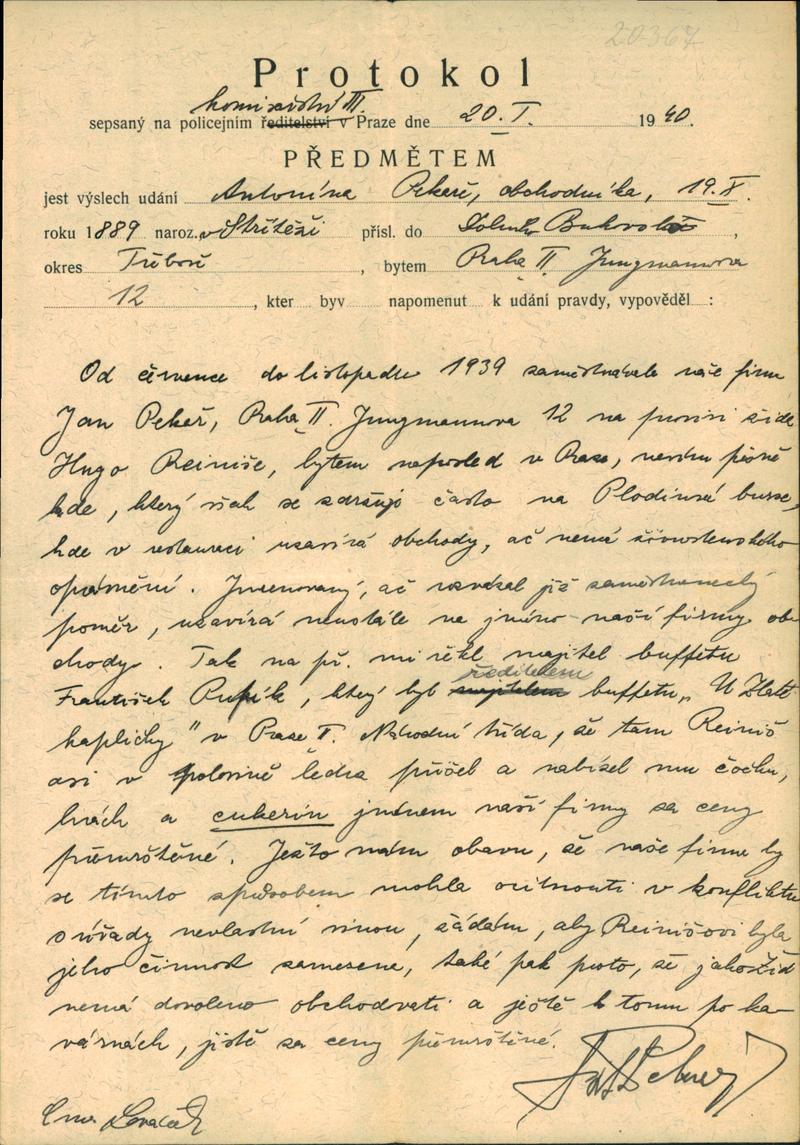 20367
Protokol
komisařství III.
sepsaný na policejním ředitelství v Praze dne 20. I. 1940.
PŘEDMĚTEM
jest výslech udání Antonína Pekaře, obchodníka, 19. X.
roku 1889 naroz. v Střítěži přísl. do Dolních Bukovsko,
okres Třeboň, bytem Praha II Jungmannova
12, kter byv napomenut k udání pravdy, vypověděl :
Od července do listopadu 1939 zaměstnávala naše firma
Jan Pekař, Praha II. Jungmannova 12 na provisi žida
Hugo Reiniše, bytem naposled v Praze, nevím přesně
kde, který však se zdržuje často na Plodinské burse,
kde v restauraci uzavírá obchody, ač nemá živnostenského
oprávnění. Jmenovaný, ač rozvázal již zaměstnanecký
poměr, uzavírá neustále na jméno naší firmy ob-
chody. Tak na př. mi řekl majitel buffetu
František Pupík, který byl majitelem ředitelem buffetu „U Zlaté
kapličky" v Praze I. Národní třída, že tam Reiniš
asi v polovině ledna přišel a nabízel mu čočku,
hrách a cukerin jménem naší firmy za ceny
přemrštěné. Ježto mám obavu, že naše firma by
se tímto způsobem mohla ocitnouti v konfliktu
s úřady nevlastní vinou, žádám, aby Reinišovi byla
jeho činnost zamezena, také pak proto, že jako žid
nemá dovoleno obchodvati a ještě k tomu po ka-
várnách, jistě za ceny přemrštěné.